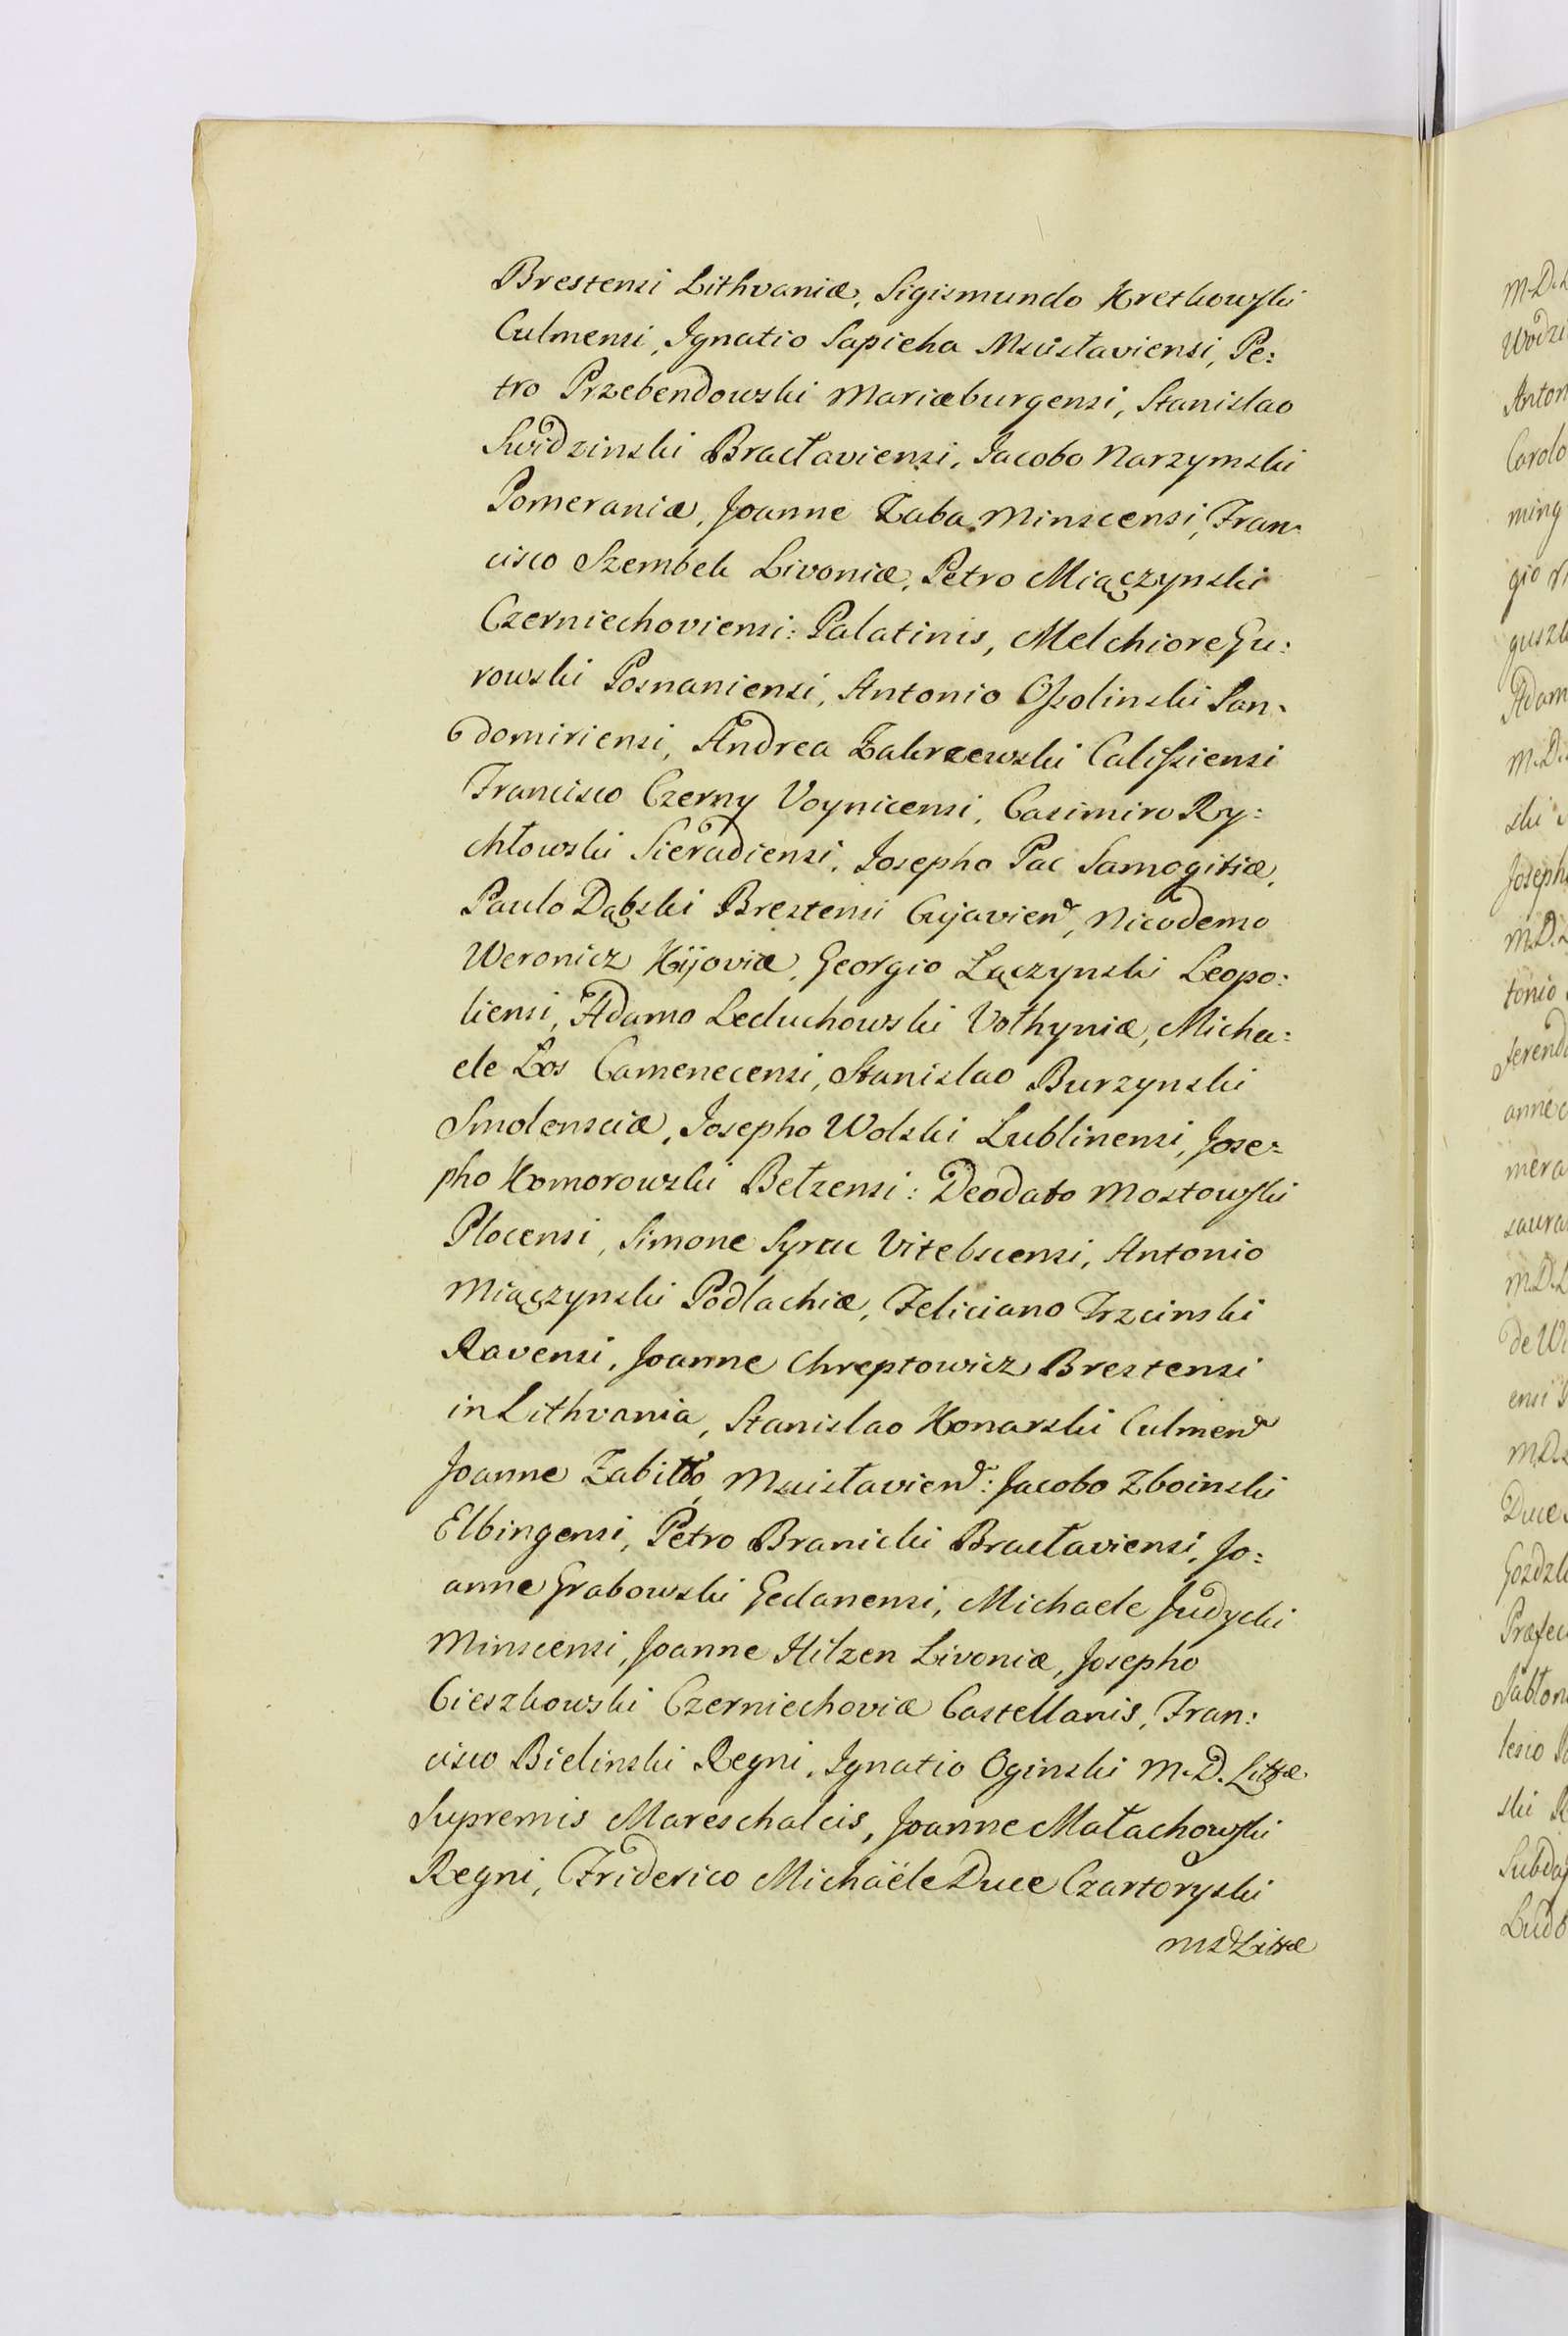 Brestensi Lithvaniæ, Sigismundo Kretkowski
Culmensi, Ignatio Sapieha Mscisłaviensi, Pe:
tro Przebendowski Mariæburgensi, Stanislao
Swidzinski Bracłaviensi, Jacobo Narzymski
Pomeraniæ, Joanne Zaba Minscensi, Fran:
cisco Szembek Livoniæ, Petro Miączynski
Czerniechoviensi: Palatinis, Melchiore Gu:
rowski Posnaniensi, Antonio Ossolinski San:
domiriensi, Andrea Zakrzewski Calissiensi
Francisco Czerny Voynicensi, Casimiro Ry:
chłowski Sieradiensi, Josepho Pac Samogitiæ,
Paulo Dąbski Brestensi Cujavien, Nicodemo
Weronicz Kijoviæ, Georgio Łączynski Leopo:
liensi, Adamo Leduchowski Vołhyniæ, Micha:
ele Łos Camenecensi, Stanislao Burzynski
Smolensciæ, Josepho Wolski Lublinensi, Jose:
pho Komorowski Bełzensi: Deodato Mostowski
Plocensi, Simone Syruc Vitebscensi, Antonio
Miączynski Podlachiæ, Feliciano Trzcinski
Ravensi, Joanne Chreptowicz Brestensi
in Lithvania, Stanislao Konarski Culmen
Joanne Zabiłło, Mscisłavien: Jacobo Zboinski
Elbingensi, Petro Branicki Bracłaviensi, Jo:
anne Grabowski Gedanensi, Michaele Judycki
Minscensi, Joanne Hilzen Livoniæ, Josepho
Cieszkowski Czerniechoviæ Castellanis, Fran:
cisco Bielinski Regni, Ignatio Oginski M. D. Littæ
Supremis Mareschalcis, Joanne Małachowski
Regni, Friderico Michaële Duce Czartoryski
M D Littæ